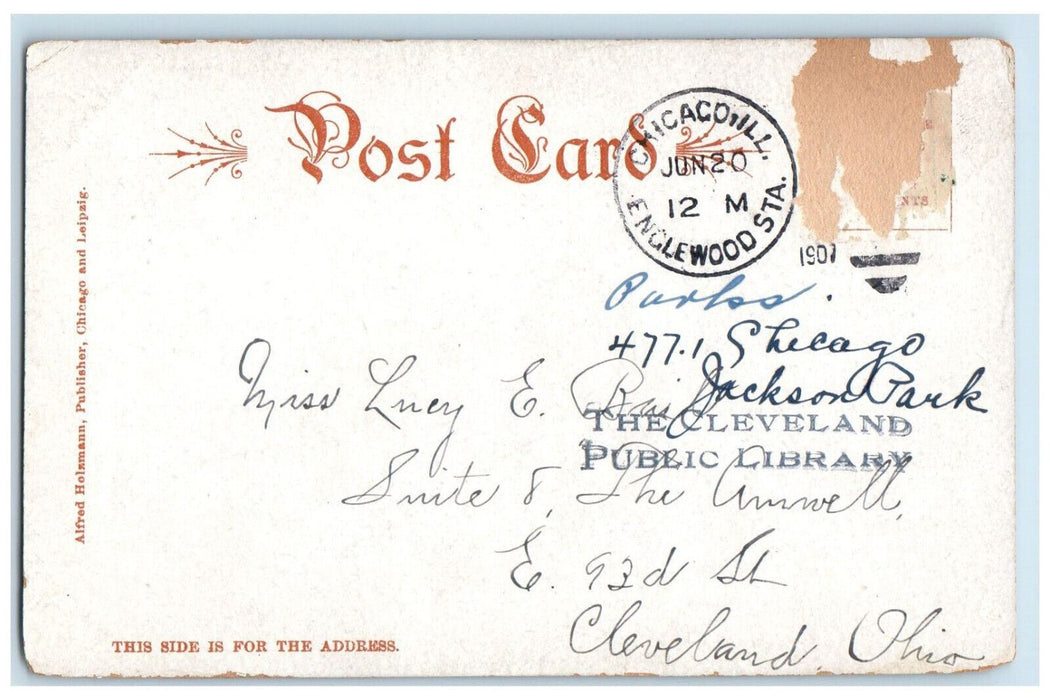 Post Card
CHICAGO, ILL.
JUN 20
12 M
ENGLEWOOD STA.
1907
NTS
Alfred Holzmann, Publisher, Chicago and Leipzig.
Parks.
477.1 Chicago
Jackson Park
Miss Lucy E.
THE CLEVELAND
PUBLIC LIBRARY
Suite 8, The Amwell,
E. 93d St
Cleveland, Ohio
THIS SIDE IS FOR THE ADDRESS.